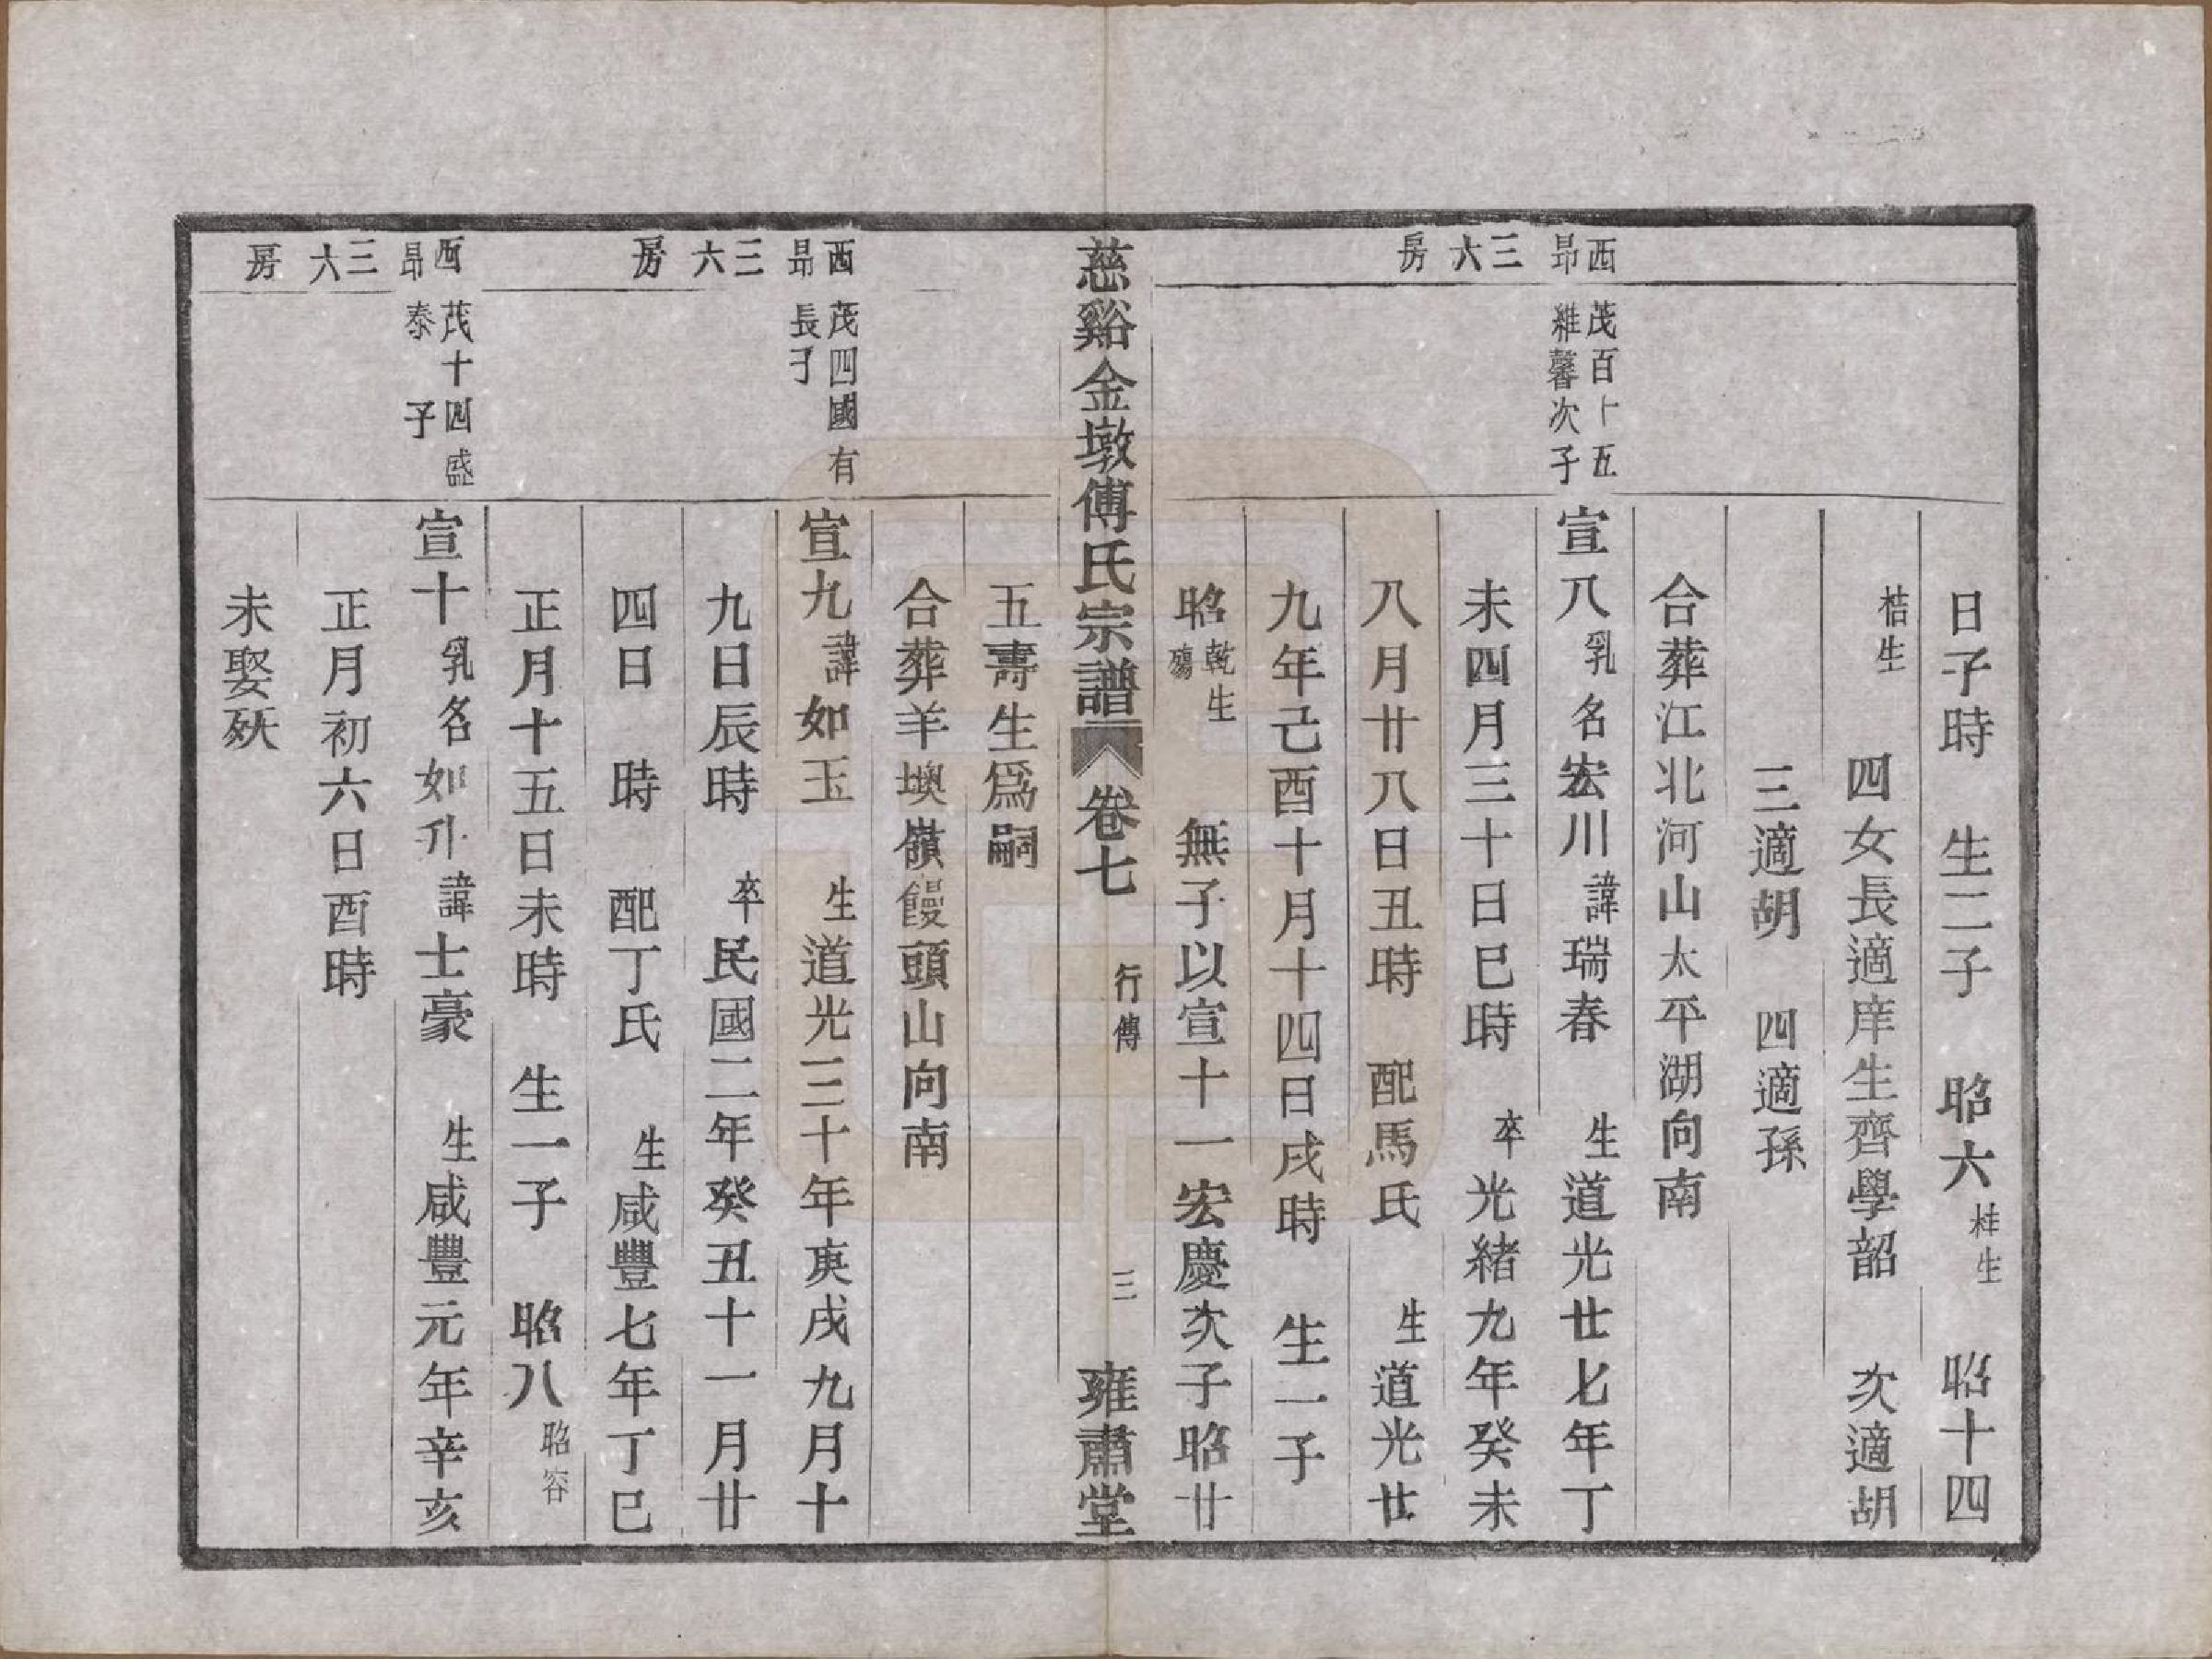 日子時　生二子　昭六桂生　昭十四
桔生　四女長適庠生齊學韶　次適胡
三適胡　四適孫
合葬江北河山太平湖向南
西昂三六房
茂百十五維馨次子
宣八乳名宏川諱瑞春　生道光廿七年丁
未四月三十日巳時　卒光緒九年癸未
八月廿八日丑時　配馬氏　生道光廿
九年己酉十月十四日戌時　生一子
昭乾生殤　無子以宣十一宏慶次子昭廿
慈谿金墩傅氏宗譜　卷七　行傳　三　雍肅堂
五壽生爲嗣
合葬羊墺嶺饅頭山向南
西昂三六房
茂四國有長子
宣九諱如玉　生道光三十年庚戌九月十
九日辰時　卒民國二年癸丑十一月廿
四日　時　配丁氏　生咸豐七年丁巳
正月十五日未時　生一子　昭八昭容
西昂三六房
茂十四盛泰子
宣十乳名如升諱士豪　生咸豐元年辛亥
正月初六日酉時
未娶殀